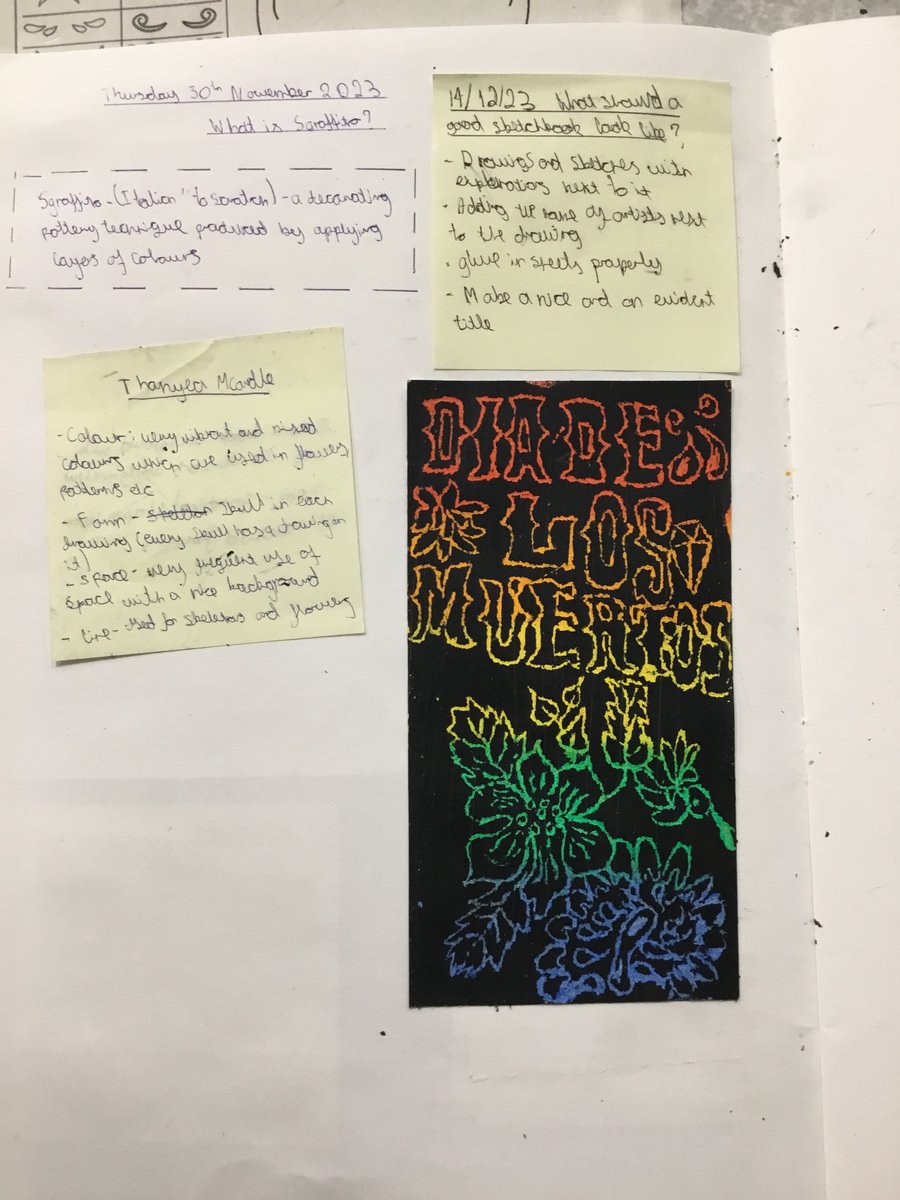 Thursday 30th November 2023
What is Sgraffito?
Sgraffito - (Italian "to scratch) - a decorating
pottery tecnique produced by applying
layers of colours
14/12/23 What should a
good sketchbook look like?
- Drawings and sketches with
next to it
- Adding the name of artists next
to the drawing
- glue in sheets properly
- Make a nice and an evident
title
Thanyea McArdle
- Colour: very vibrant and mixed
colours which are used in flowers
patterns etc
- Form - skeleton skull in each
drawing (every skull has a drawing on
it)
- space - very frequent use of
space with a nice background
- line - used for skeletons and
DIA DE
LOS
MUERTOS